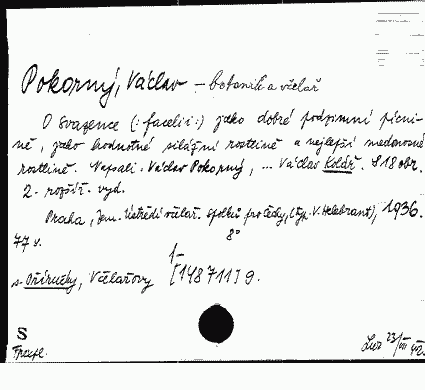 Pokorný, Václav – botanik a včelař
O svazence (:facelii:) jako dobré podzimní pícni-
ně, jako hodnotné silážní rostlině a nejlepší medonosné
rostlině. Napsali: Václav Pokorný, ... Václav Kolář. S 18 obr.
2. rozšíř. vyd.
Praha, Zem. Ústředí včelař. spolků pro Čechy, (typ. V. Helebrant), 1936.
8°
77 s.
s. Příručky, Včelařovy [1487113 9.
S